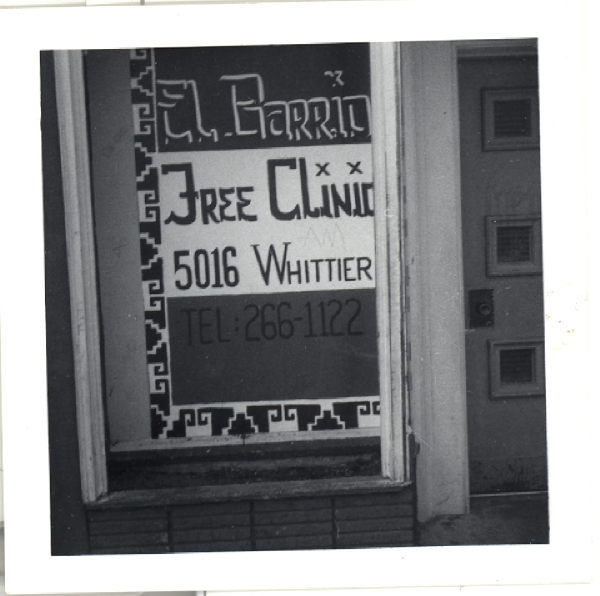 El Barrio
Free Clinic
5016 Whittier
TEL: 266-1122